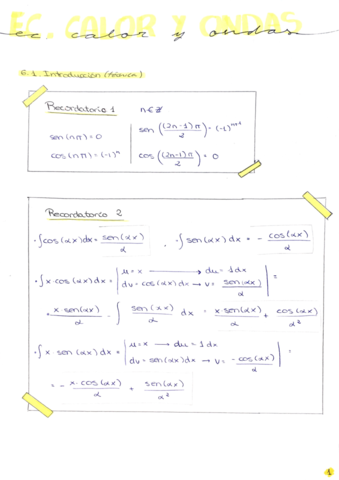 EC. CALOR Y ONDAS
ec. calor y ondas
6.1. Introducción (teórica)
Recordatorio 1 n∈Z
sen(nπ)=0 sen((2n-1)π/2)=(-1)^(n+1)
cos(nπ)=(-1)^n cos((2n-1)π/2)=0
Recordatorio 2
·∫cos(αx)dx=sen(αx)/α ·∫sen(αx)dx=-cos(αx)/α
·∫x·cos(αx)dx=|u=x → du=1dx
dv=cos(αx)dx → v=sen(αx)/α|=
=x·sen(αx)/α-∫sen(αx)/α dx=x·sen(αx)/α+cos(αx)/α²
·∫x·sen(αx)dx=|u=x → du=1dx
dv=sen(αx)dx → v=-cos(αx)/α|=
=-x·cos(αx)/α+sen(αx)/α²
1